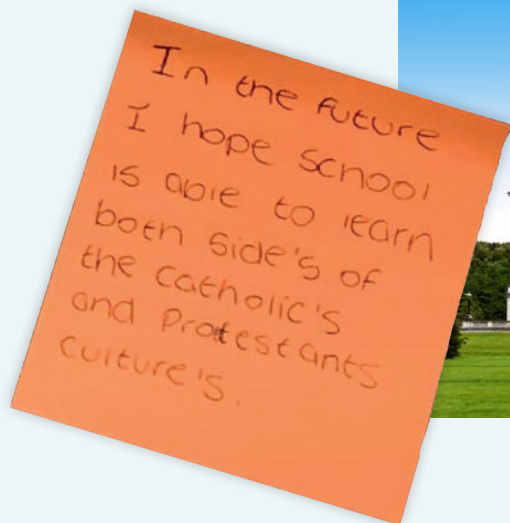 In the future
I hope school
is able to learn
both side's of
the catholic's
and Protestants
culture's.